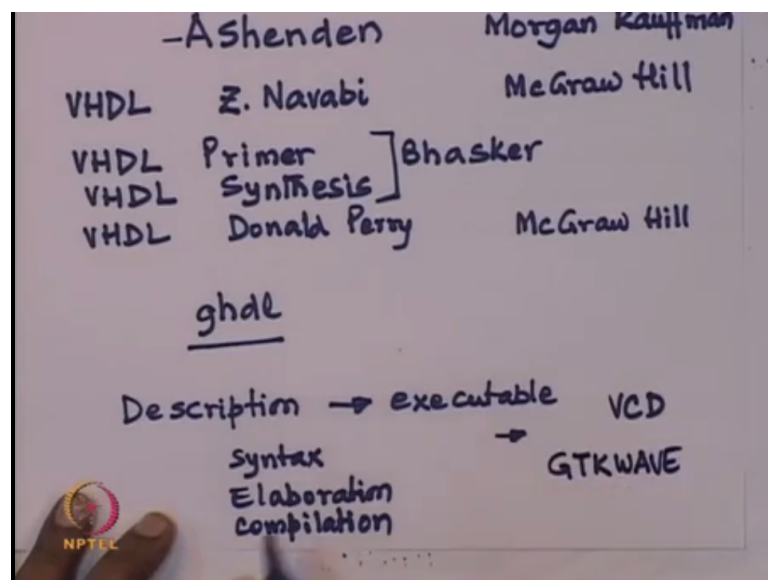 -Ashenden Morgan Kauffman
VHDL Z. Navabi McGraw Hill
VHDL Primer ] Bhasker
VHDL Synthesis
VHDL Donald Perry McGraw Hill
ghdl
Description → executable VCD
→
Syntax GTKWAVE
Elaboration
compilation
NPTEL